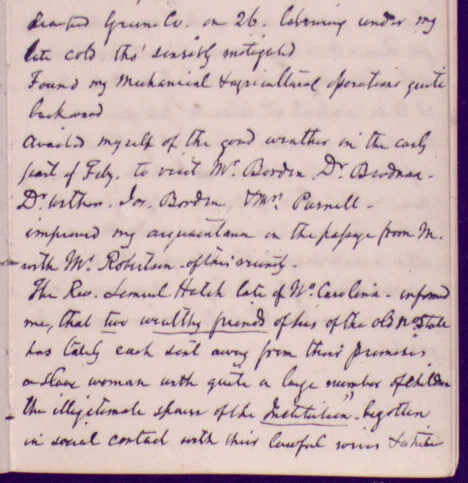 Reached Greene Co. on 26. labouring under my
late cold tho' sensibly mitigated
Found my mechanical & agricultural operations quite
backward
availed myself of the good weather in the early
part of Feby. to visit Mr. Borden, Dr. Brodnax -
Dr. Withers. Jos. Borden & Mrs. Purnell -
improved my acquaintance on the passage from M.
with Mr. Robertson - of this vicinity -
The Rev. Lemuel Hatch late of No. Carolina - informed
me, that two wealthy friends of his of the old No. State
has lately each sent away from their premises
a slave woman with quite a large number of children
the illegitimate spawn of the Institution" begotten
in social contact with their lawful wives & white